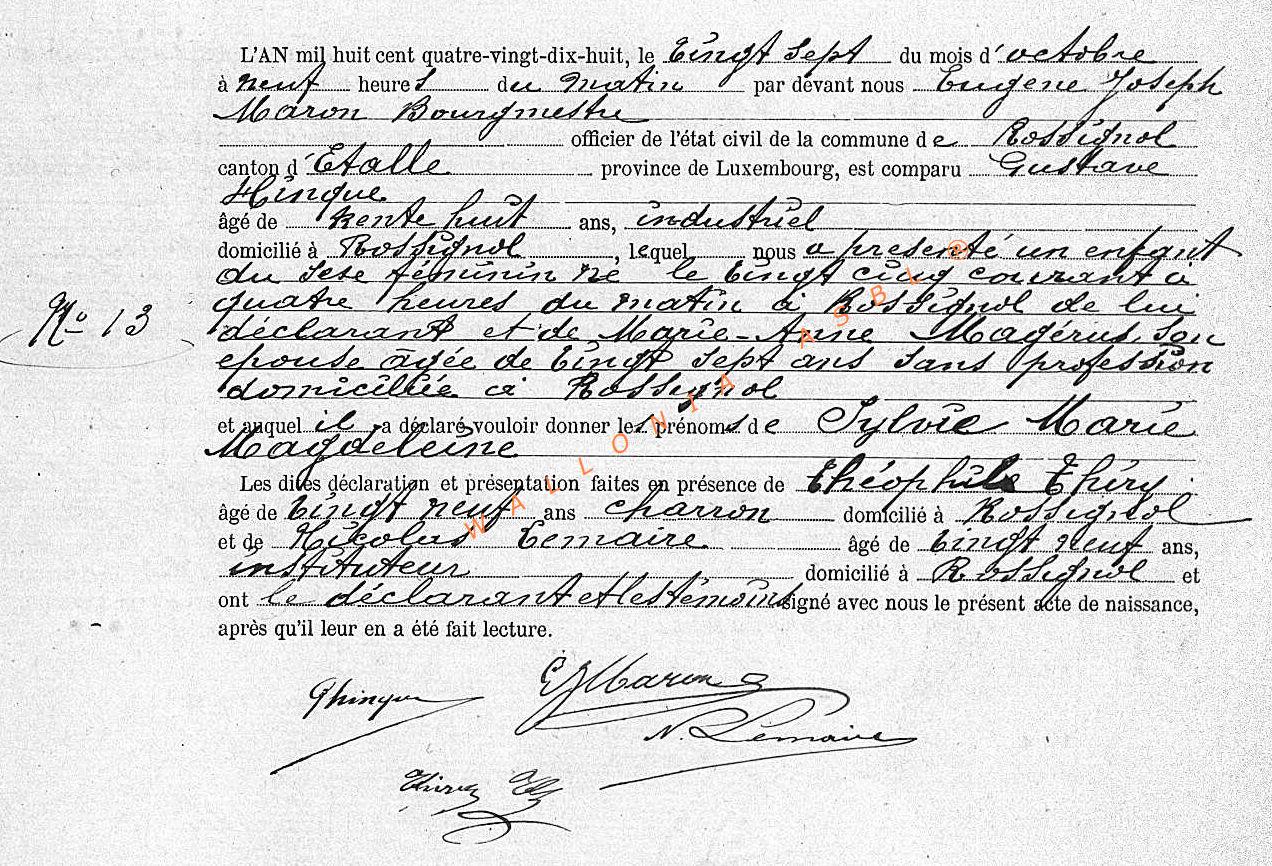 L'AN mil huit cent quatre-vingt-dix-huit, le vingt sept du mois d'octobre
à neuf heures du matin par devant nous Eugène Joseph
Maron Bourgmestre
officier de l'état civil de la commune de Rossignol
canton d'Etalle province de Luxembourg, est comparu Gustave
Hinque
âgé de trente huit ans, industriel
domicilié à Rossignol, lequel nous a présenté un enfant
du sexe féminin né le vingt cinq courant à
N° 13
quatre heures du matin à Rossignol de lui
déclarant et de Marie-Anne Magérus, son
epouse âgée de vingt sept ans sans profession
domiciliée à Rossignol
et auquel il a déclaré vouloir donner les prénoms de Sylvie Marie
Magdeleine
Les dites déclaration et présentation faites en présence de Théophile Thiry
âgé de vingt neuf ans charron domicilié à Rossignol
et de Nicolas Lemaire âgé de vingt neuf ans,
instituteur domicilié à Rossignol et
ont le déclarant et les témoins signé avec nous le présent acte de naissance,
après qu'il leur en a été fait lecture.
EJMaron
Ghinque
N. Lemaire
Thiry Th
WALLONIA ASBL ®